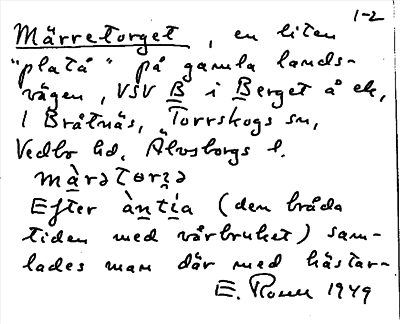 1-2
Märretorget, en liten
"platå" på gamla lands-
vägen, VSV B i Berget å ek,
1 Bråtnäs, Torrskogs sn,
Vedbo hd, Älvsborgs l.
Efter àntia (den bråda
tiden med vårbruket) sam-
lades man där med hästar-
E. 1949